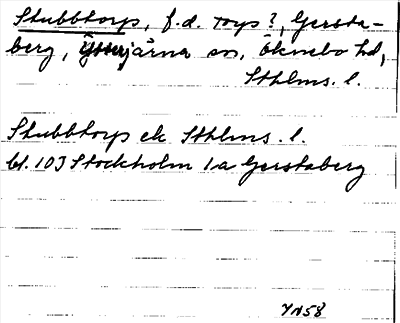 Stubbtorp, f.d. torp?, Gersta-
berg, Ytterjärna sn, Öknebo hd,
Sthlms. l.
Stubbtorp ek Sthlms. l.
bl. 103 Stockholm 1a Gerstaberg
YN58